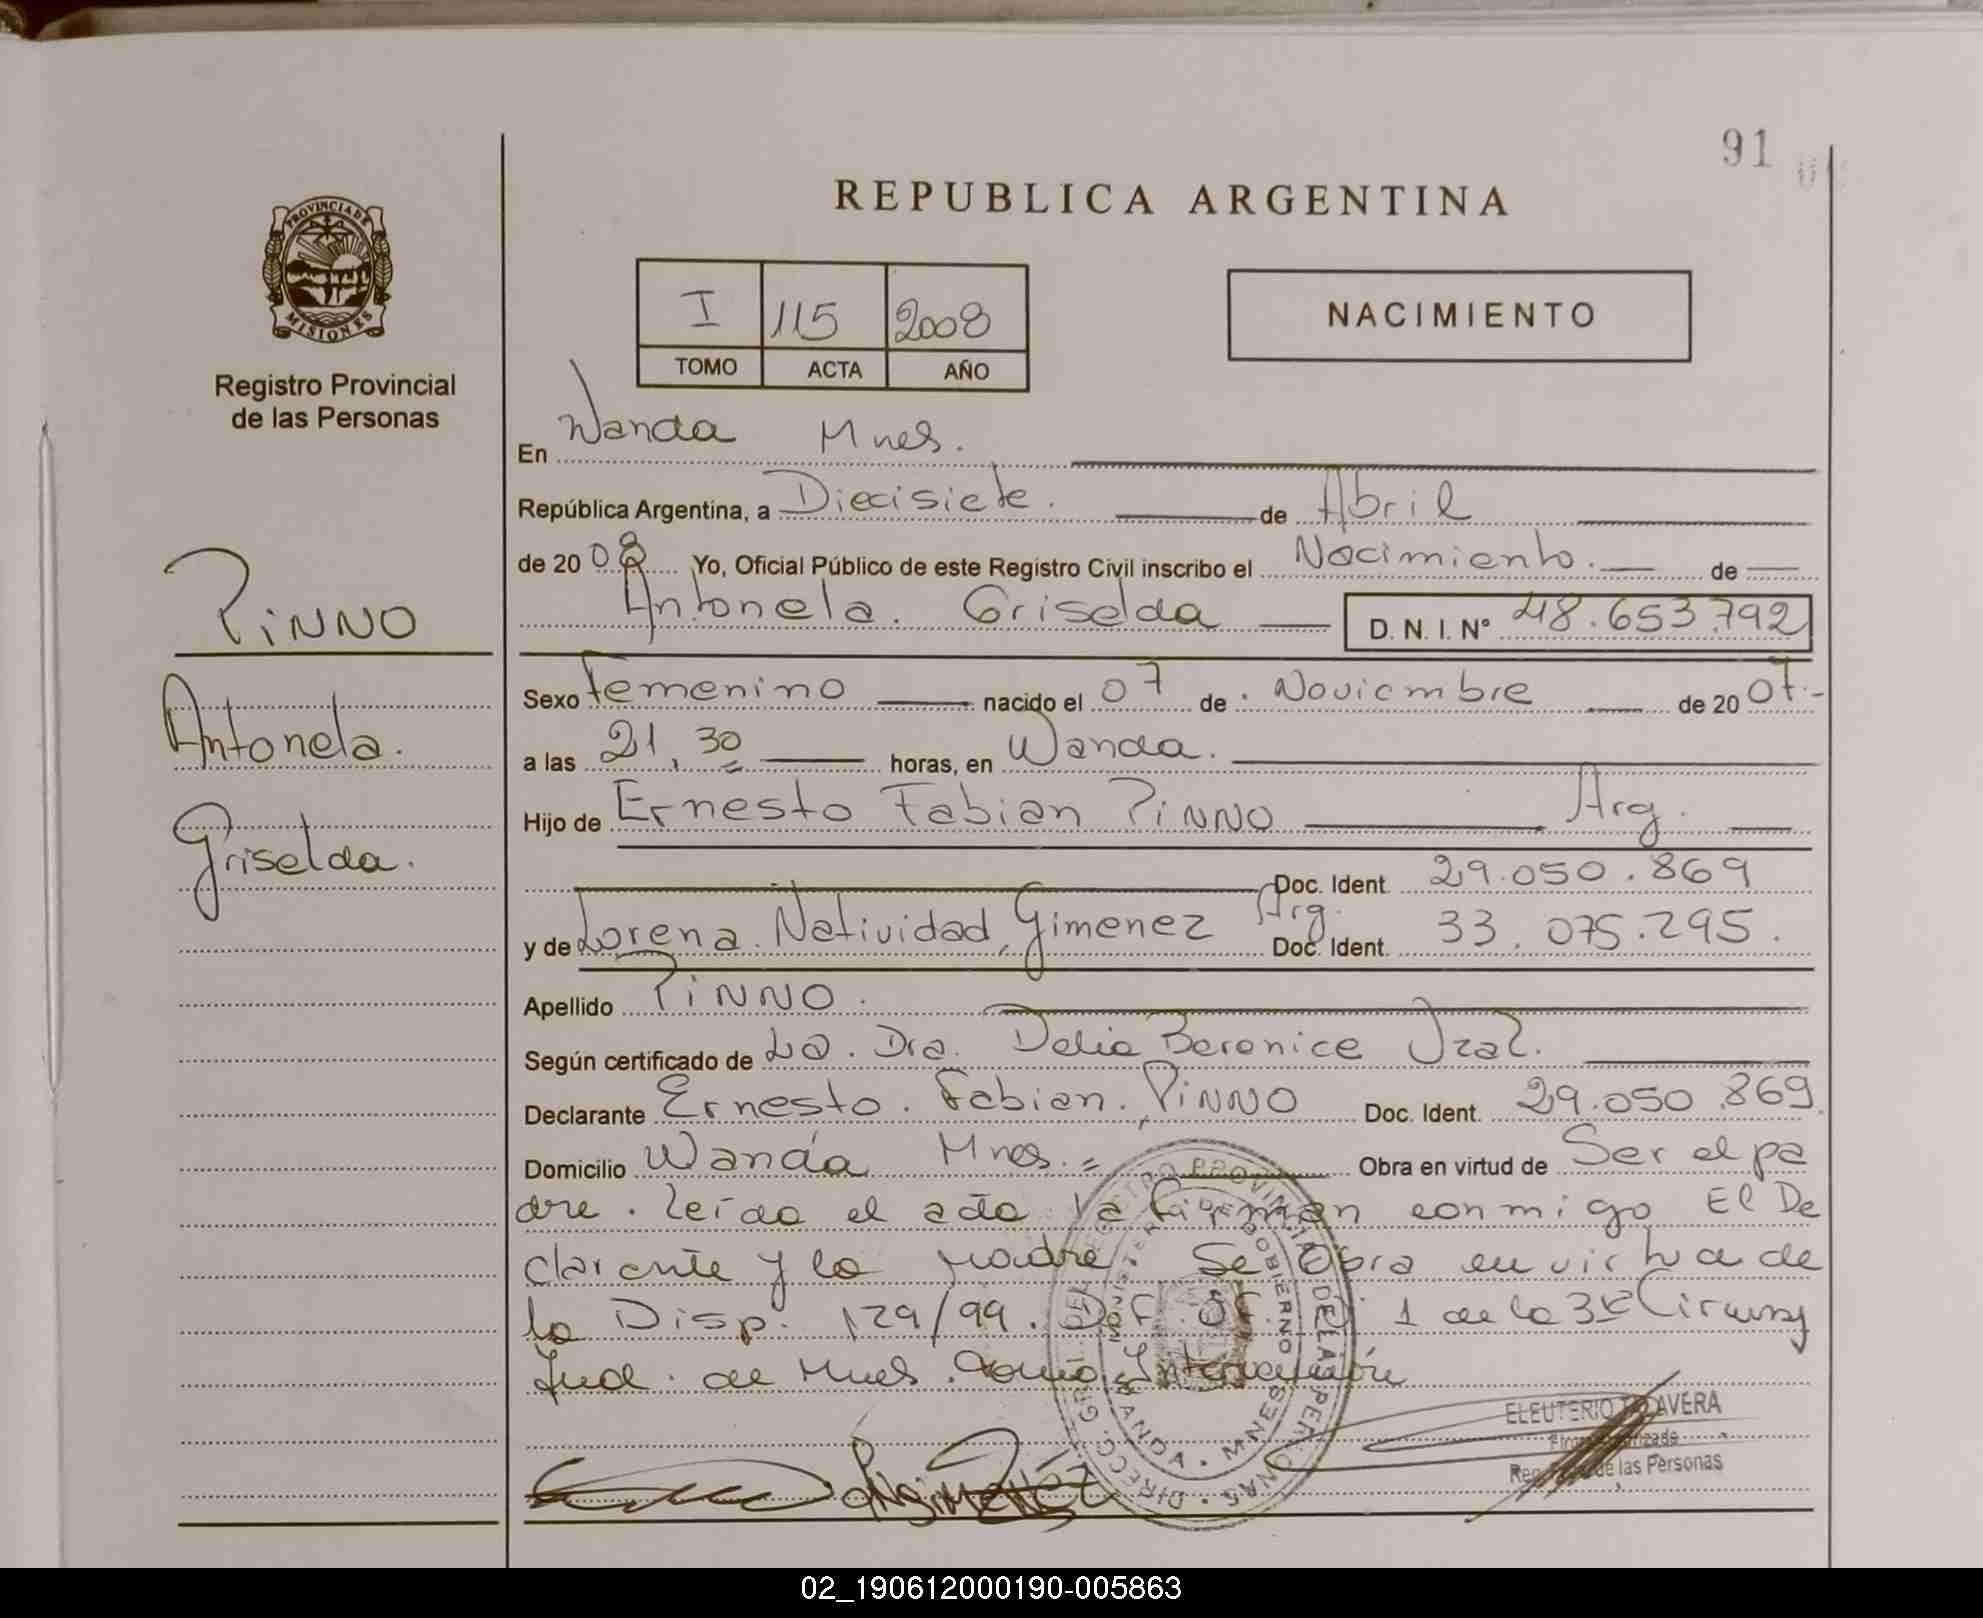 91
REPUBLICA ARGENTINA
PROVINCIA DE
MISIONES
Registro Provincial
de las Personas
I 115 2008
TOMO ACTA AÑO
NACIMIENTO
En Wanda Mnes.
República Argentina, a Diecisiete. de Abril
de 2008 Yo, Oficial Público de este Registro Civil inscribo el Nacimiento. de
Antonela. Griselda D. N. I. N° 48.653.792
PiNNO
Antonela.
Griselda.
Sexo Femenino nacido el 07 de . Noviembre de 2007.-
a las 21,30 horas, en Wanda.
Hijo de Ernesto Fabian PiNNO Arg.
Doc. Ident. 29.050.869
y de Lorena. Natividad, Gimenez Arg. Doc. Ident. 33.075.295.
Apellido PiNNO.
Según certificado de La. Dra. Delia Berenice Izal.
Declarante Ernesto. Fabian. PiNNO Doc. Ident. 29.050.869.
Domicilio Wanda Mnes.= Obra en virtud de Ser el pa
dre. Leído el acta la firman conmigo El De
clarante y la Madre. Se Obra en virtud de
la Disp. 129/99. Def. Of. N° 1 de la 3ra Circuns
Jud. de Mnes. Tomo Intervención
ELEUTERIO TALAVERA
Reg. de las Personas
02_190612000190-005863